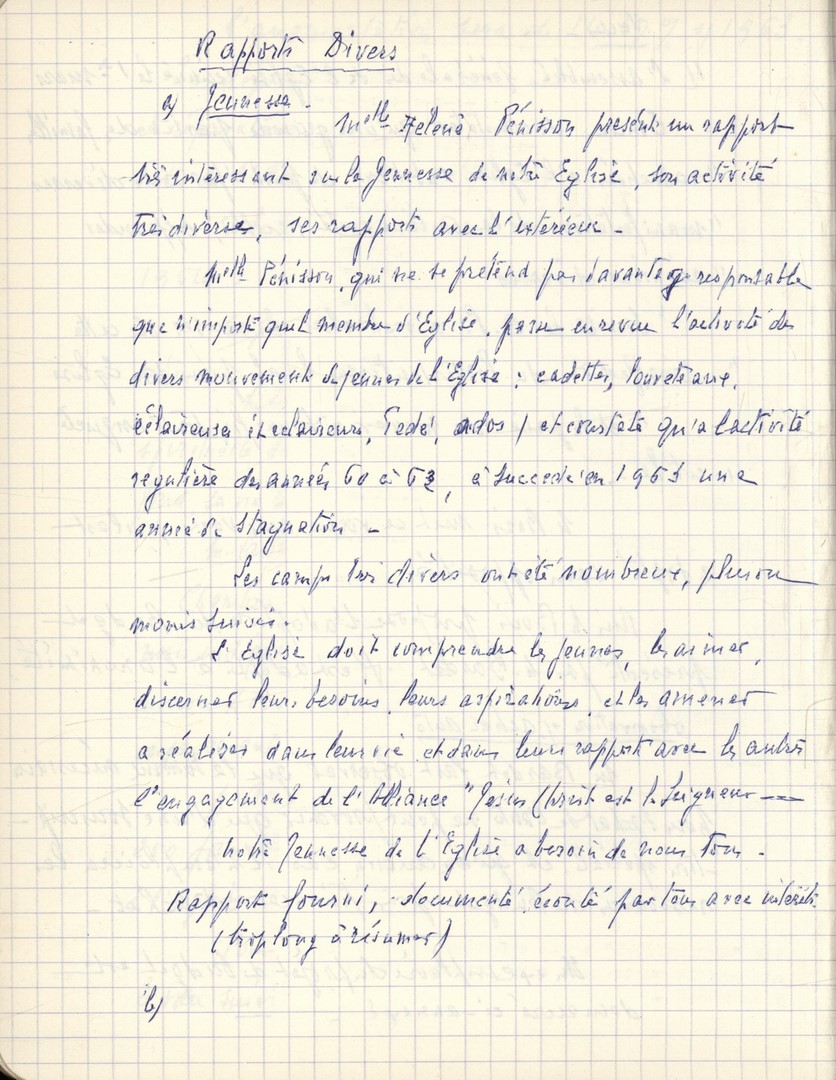 Rapports Divers
a) Jeunesse.
Melle Hélène Pénisson présente un rapport
très intéressant sur la Jeunesse de notre Eglise, son activité
très diverse, ses rapports avec l'extérieur -
Melle Pénisson, qui ne se prétend pas davantage responsable
que n'importe quel membre d'Eglise, passe en revue l'activité des
divers mouvements de jeunes de l'Eglise : cadettes, louveteaux,
éclaireuses et éclaireurs, ados) et constate qu'à l'activité
regulière des années 60 à 62, a succédé en 1963 une
année de stagnation -
Les camps très divers ont été nombreux, plus ou
moins suivis.
L'Eglise doit comprendre les jeunes, les aimer,
discerner leurs besoins, leurs aspirations, et les amener
a réaliser dans leur vie et dans leurs rapports avec les autres
l'engagement de l'Alliance "Jésus Christ est le Seigneur ----
Notre Jeunesse de l'Eglise a besoin de nous tous -
Rapport fourni, documenté, écouté par tous avec intérêt.
(trop long à résumer)
b)